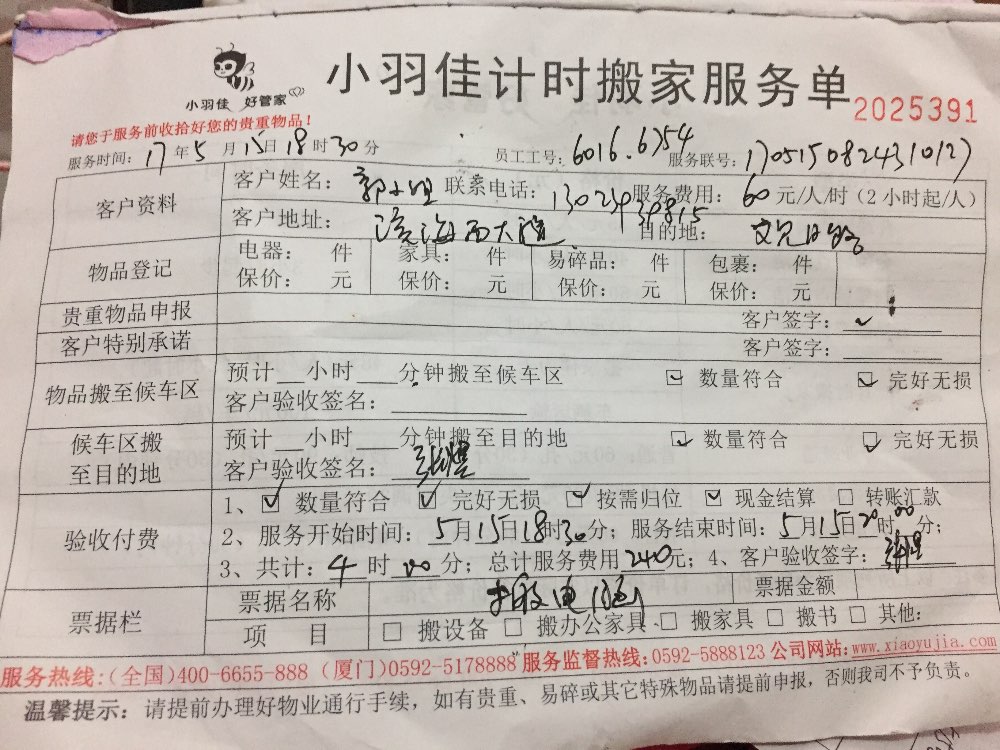 小羽佳 好管家
小羽佳计时搬家服务单
2025391
请您于服务前收拾好您的贵重物品！
服务时间：17年5月15日18时30分 员工工号：6016.6754 服务联号：1705150824310127
客户资料
客户姓名： 联系电话： 服务费用：60元/人/时（2小时起/人）
客户地址：滨海西大道 目的地：
物品登记
电器： 件 家具： 件 易碎品： 件 包裹： 件
保价： 元 保价： 元 保价： 元 保价： 元
贵重物品申报 客户签字：
客户特别承诺 客户签字：
物品搬至候车区
预计__小时___分钟搬至候车区 ☑ 数量符合 ☑ 完好无损
客户验收签名：
候车区搬至目的地
预计__小时___分钟搬至目的地 ☑ 数量符合 ☑ 完好无损
客户验收签名：张煜
验收付费
1、☑ 数量符合 ☑ 完好无损 ☑ 按需归位 ☑ 现金结算 □ 转账汇款
2、服务开始时间：5月15日18时30分；服务结束时间：5月15日20时00分；
3、共计：4时00分；总计服务费用240元；4、客户验收签字：张煜
票据栏
票据名称 搬电脑 票据金额
项 目 □ 搬设备 □ 搬办公家具 □ 搬家具 □ 搬书 □ 其他:
服务热线:(全国)400-6655-888 (厦门)0592-5178888 服务监督热线:0592-5888123 公司网站:www.xiaoyujia.com
温馨提示：请提前办理好物业通行手续，如有贵重、易碎或其它特殊物品请提前申报，否则我司不予负责。